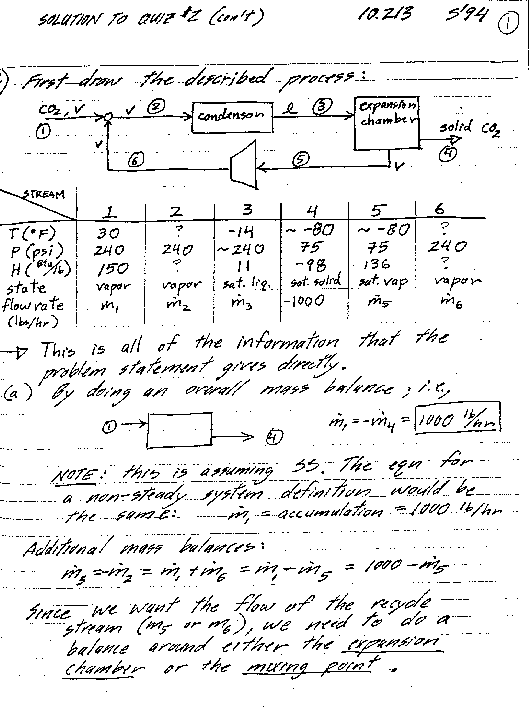 SOLUTION TO QUIZ #2 (con't) 10.213 S'94 ①
First draw the described process:
CO₂, v v ② condenser l ③ expansion chamber
① solid CO₂
④
v ⑥ ⑤ v
STREAM 1 2 3 4 5 6
T (°F) 30 ? -14 ~ -80 ~ -80 ?
P (psi) 240 240 ~240 75 75 240
H (Btu/lb) 150 ? 11 -98 136 ?
state vapor vapor sat. liq. sat. solid sat. vap vapor
flowrate ṁ₁ ṁ₂ ṁ₃ -1000 ṁ₅ ṁ₆
(lbs/hr)
→ This is all of the information that the
problem statement gives directly.
(a) By doing an overall mass balance, i.e.,
① → → ④ ṁ₁ = -ṁ₄ = 1000 lb/hr
NOTE: this is assuming SS. The eqn for
a non-steady system definition would be
the same: ṁ₁ = accumulation = 1000 lb/hr
Additional mass balances:
ṁ₃ = -ṁ₂ = ṁ₁ + ṁ₆ = ṁ₁ - ṁ₅ = 1000 - ṁ₅
Since we want the flow of the recycle
stream (ṁ₅ or ṁ₆), we need to do a
balance around either the expansion
chamber or the mixing point.